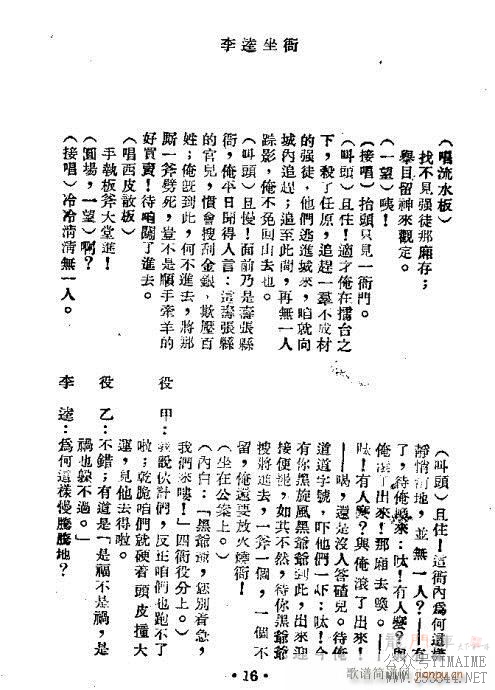 李逵坐衙
（唱流水板）
找不見强徒那廂存；
舉目留神來觀定。
（一望）咦！
（接唱）抬頭只見一衙門。
（叫頭）且住！適才俺在擂台之
下，殺了任原，追趕一羣不成材
的强徒，他們逃進城來，咱就向
城內追趕；追至此間，再無一人
踪影，俺不免回山去也。
（叫頭）且慢！面前乃是壽張縣
衙，俺平日聞得人言：這壽張縣
的官兒，慣會搜刮金銀、欺壓百
姓；俺旣到此，何不進去，將那
厮一斧劈死，豈不是順手牽羊的
好買賣！待咱闖了進去。
（唱西皮散板）
手執板斧大堂進！
（圓場，一望）啊？
（接唱）冷冷清清無一人。
（叫頭）且住！這衙內爲何這樣
靜悄悄地，並無一人？——有
了，待俺喚來：呔！有人麼？與
俺滚了出來！那廂去喚。——
呔！有人麼？與俺滚了出來！
——喝，還是沒人答碴兒。待俺
道道字號，吓他們一吓：呔！今
有你黑旋風黑爺爺到此，出來迎
接便罷，如其不然，待你黑爺爺
搜將進去，一斧一個，一個不
留，俺還要放火燒衙！
（坐在公案上。）
（內白：「黑爺爺，您別着急，
我們來嘍！」四衙役分上。）
役　甲：我說伙計們，反正咱們也跑不了
啦；乾脆咱們就硬着頭皮撞大
運，見他去得啦。
役　乙：不錯；有道是「是福不是禍，是
禍也躱不過。」
李　逵：爲何這樣慢騰騰地？
·16·
公众号TIMAIME
歌谱简谱网